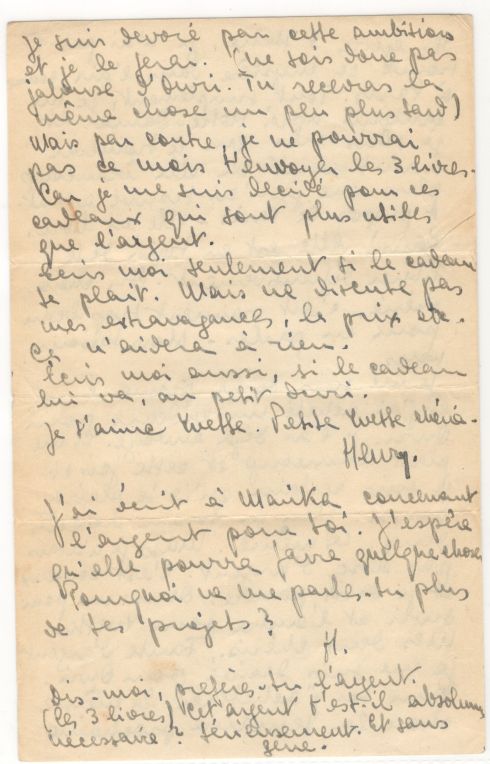 je suis devoré par cette ambition
et je le ferai. (ne sois donc pas
jalouse d'Ouri. Tu recevras la
même chose un peu plus tard)
Mais par contre, je ne pourrai
pas ce mois t'envoyer les 3 livres.
Car je me suis décidé pour ces
cadeaux qui sont plus utiles
que l'argent.
Ecris moi seulement si le cadeau
te plait. Mais ne discute pas
mes extravagances, le prix etc.
Ça n'aidera à rien.
Ecris moi aussi, si le cadeau
lui va, au petit Ouri.
Je t'aime Yvette. Petite Yvette chérie.
Henry.
J'ai écrit à Marika concernant
l'argent pour toi. J'espère
qu'elle pourra faire quelque chose.
Pourquoi ne me parles-tu plus
de tes projets?
H.
Dis-moi, prefères-tu l'argent.
(les 3 livres) Cet argent t'est-il absolum
nécessaire? Sérieusement. Et sans
gene.